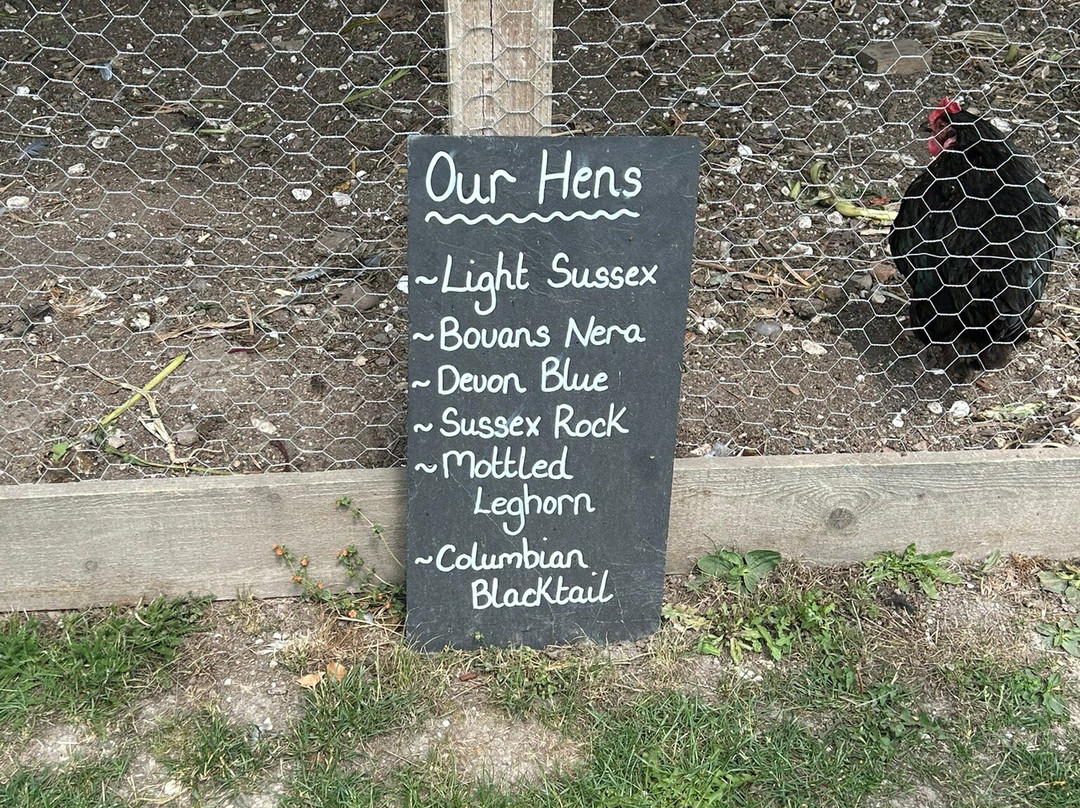 Our Hens
~Light Sussex
~Bovans Nera
~Devon Blue
~Sussex Rock
~Mottled
Leghorn
~Columbian
Blacktail